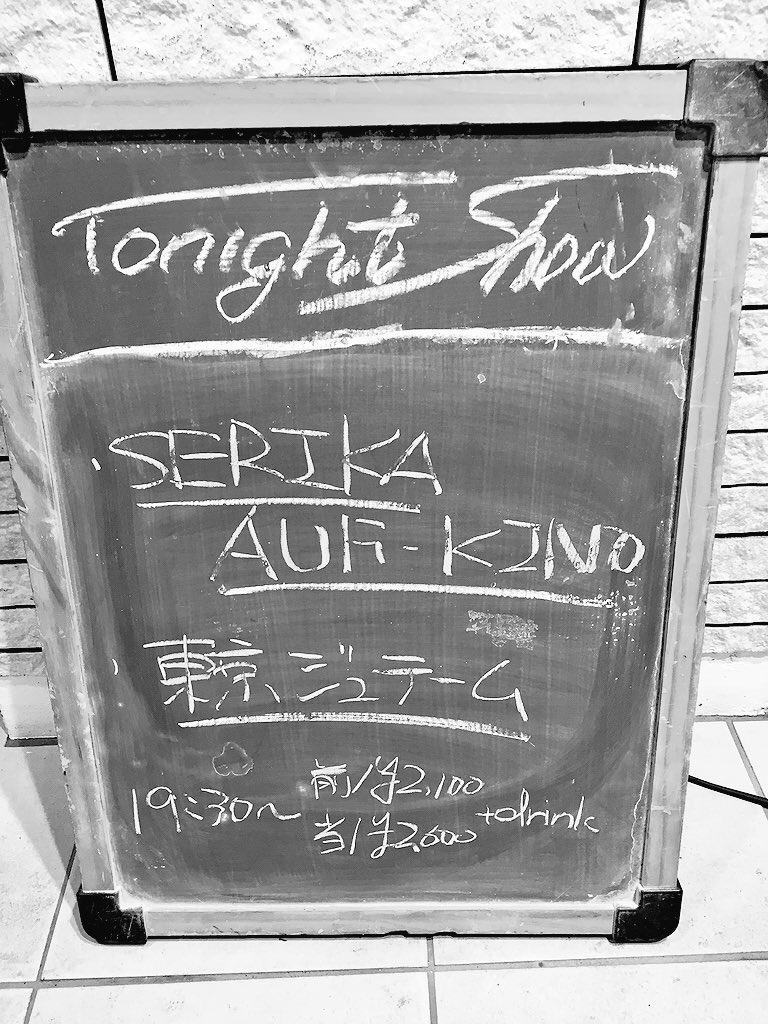 Tonight Show
SERIKA
AUH-KINO
東京ジュテーム
19:30〜
前/¥2,100
当/¥2,600
+drink